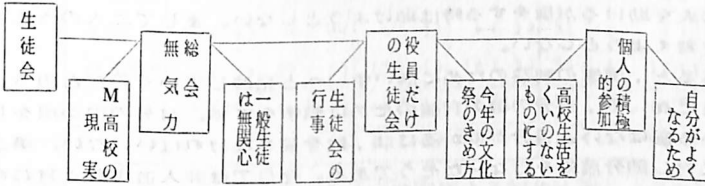 生徒会
M高校の
現実
総会
無気力
一般生徒
は無関心
生徒会の
行事
役員だけ
の生徒会
今年の文化
祭のきめ方
高校生活を
くいのない
ものにする
個人の積極
的参加
自分がよく
なるため